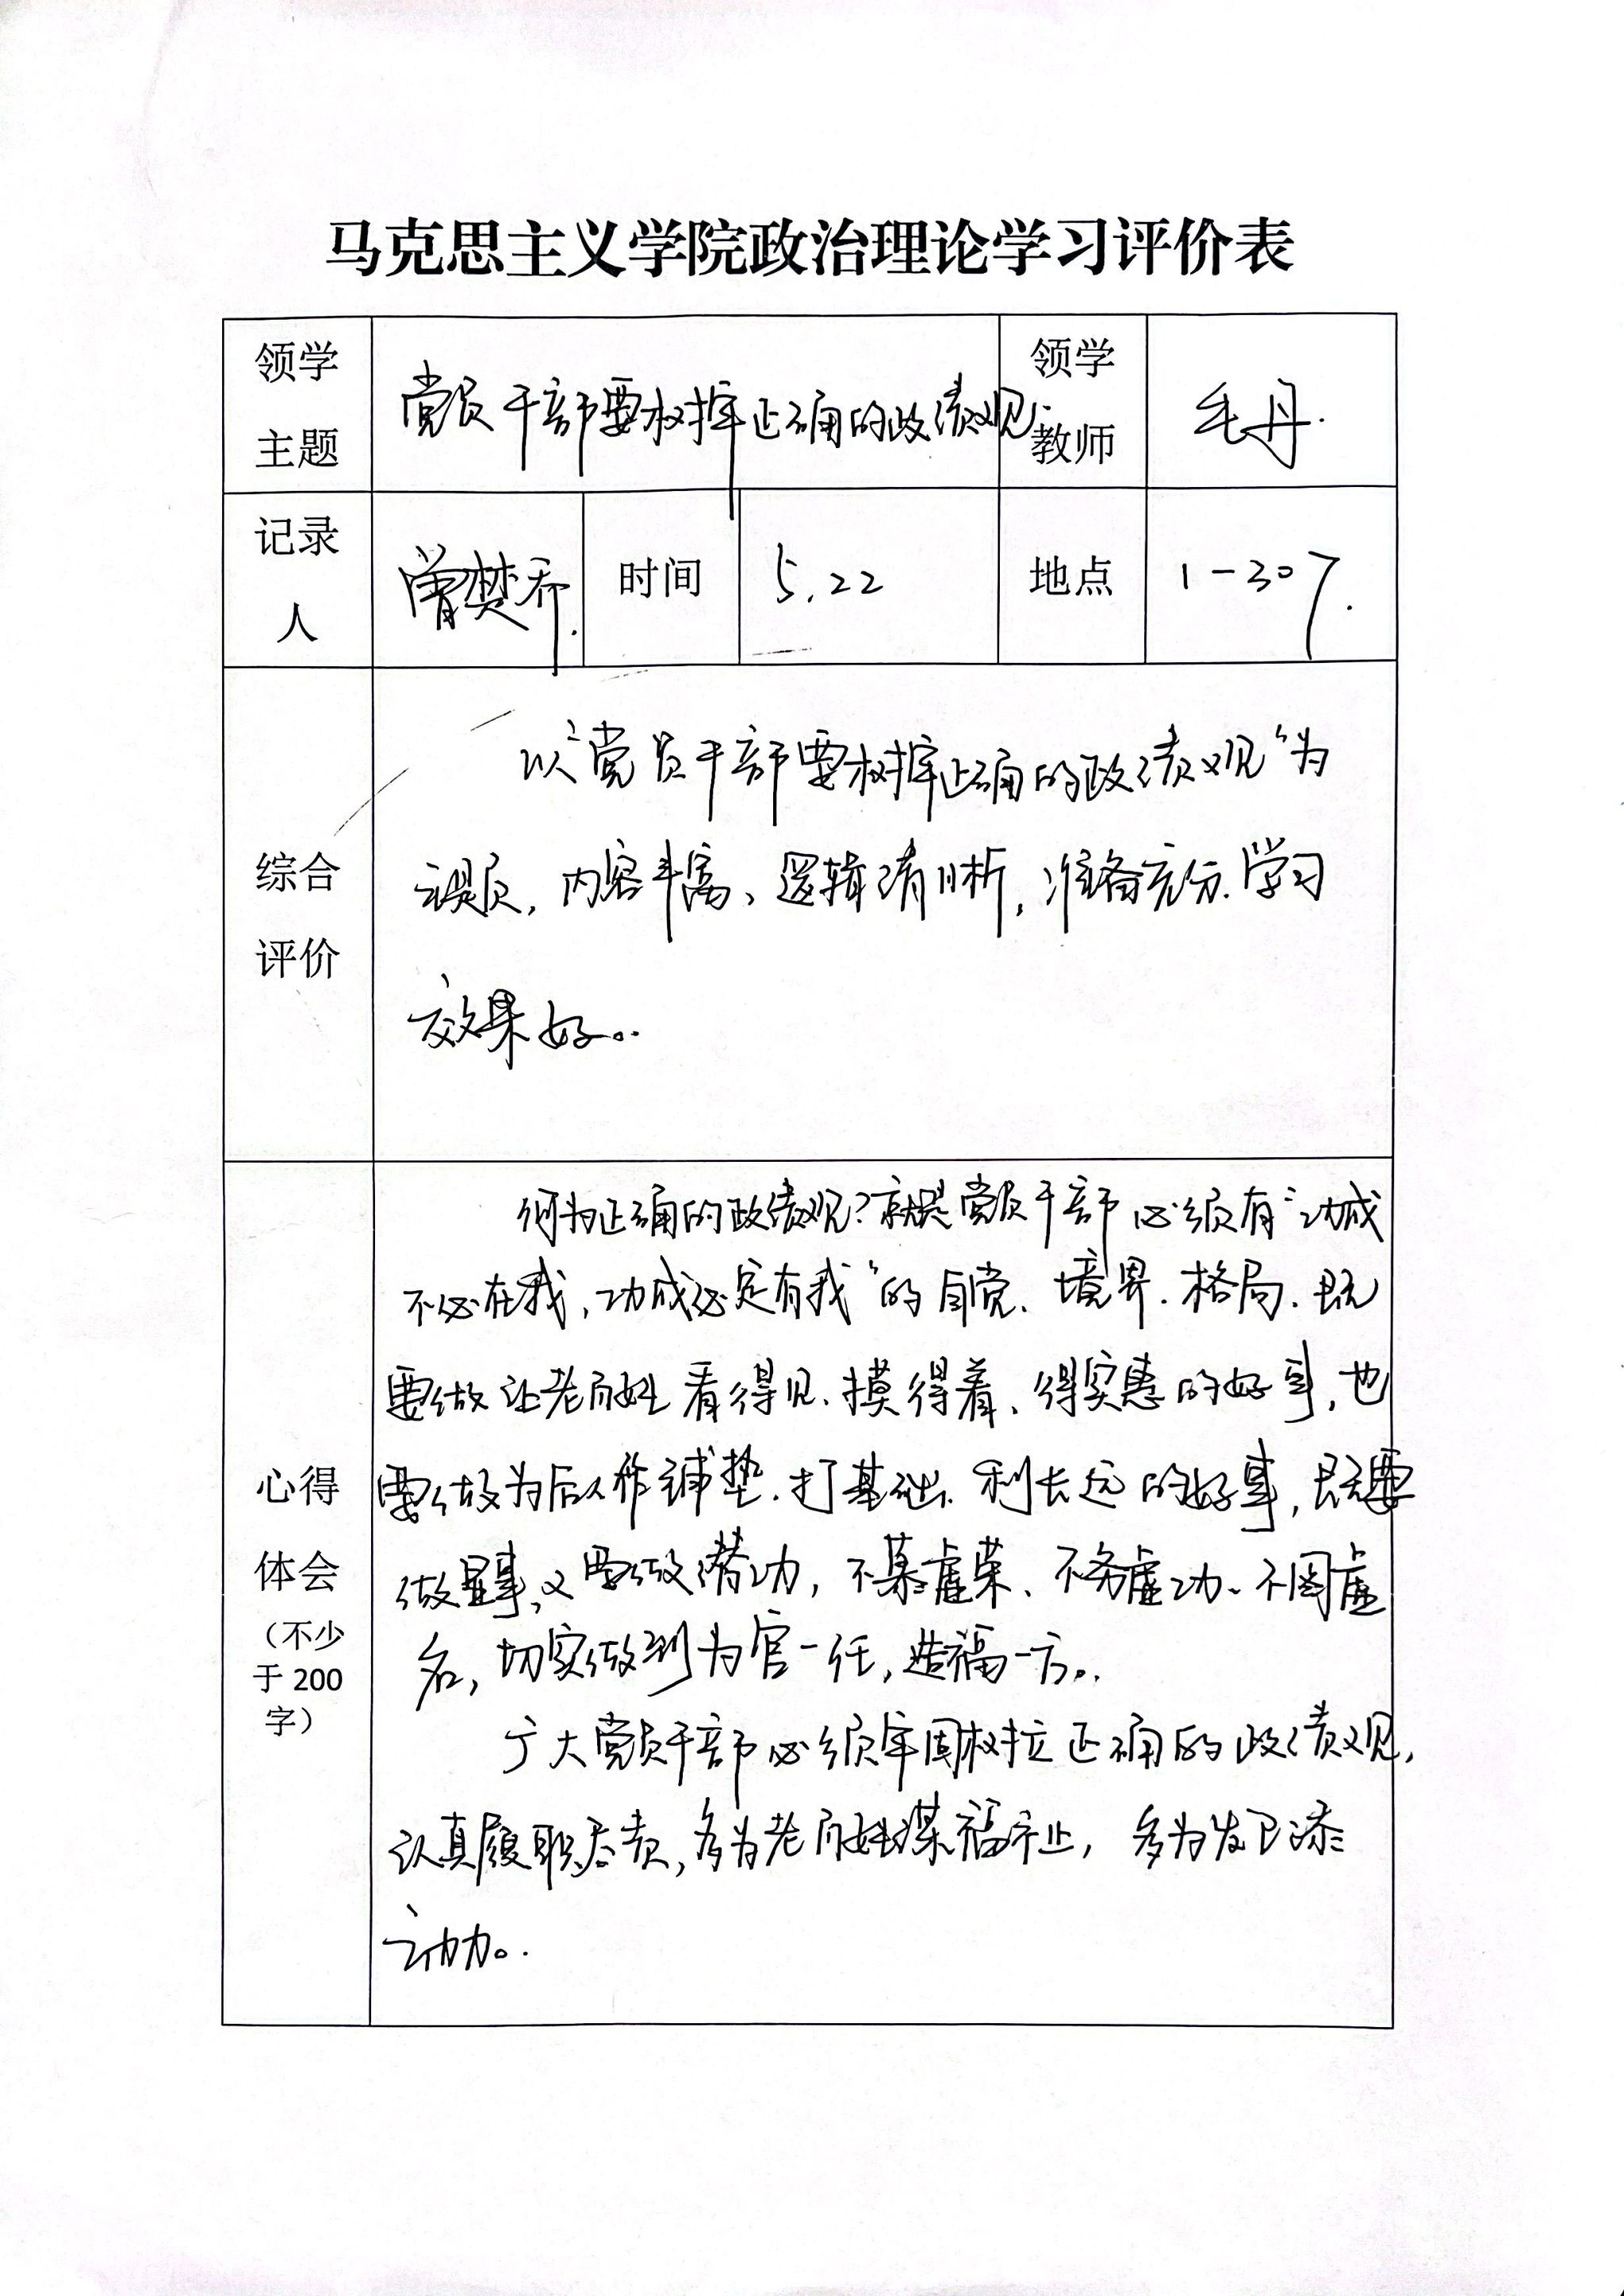 马克思主义学院政治理论学习评价表
领学
主题
党员干部要树牢正确的政绩观
领学
教师
毛丹.
记录
人
曾楚乔.
时间
5.22
地点
1-307.
综合
评价
以“党员干部要树牢正确的政绩观”为
课题,内容丰富、逻辑清晰,准备充分.学习
效果好。
心得
体会
(不少
于200
字)
何为正确的政绩观?就是党员干部必须有“功成
不必在我,功成必定有我”的自觉、境界、格局.既
要做让老百姓看得见、摸得着、得实惠的好事,也
要做为后人作铺垫、打基础、利长远的好事,既要
做显事,又要做潜功,不慕虚荣、不务虚功、不图虚
名,切实做到为官一任,造福一方。
广大党员干部必须牢固树立正确的政绩观,
认真履职尽责,多为老百姓谋福祉,多为发展添
动力。